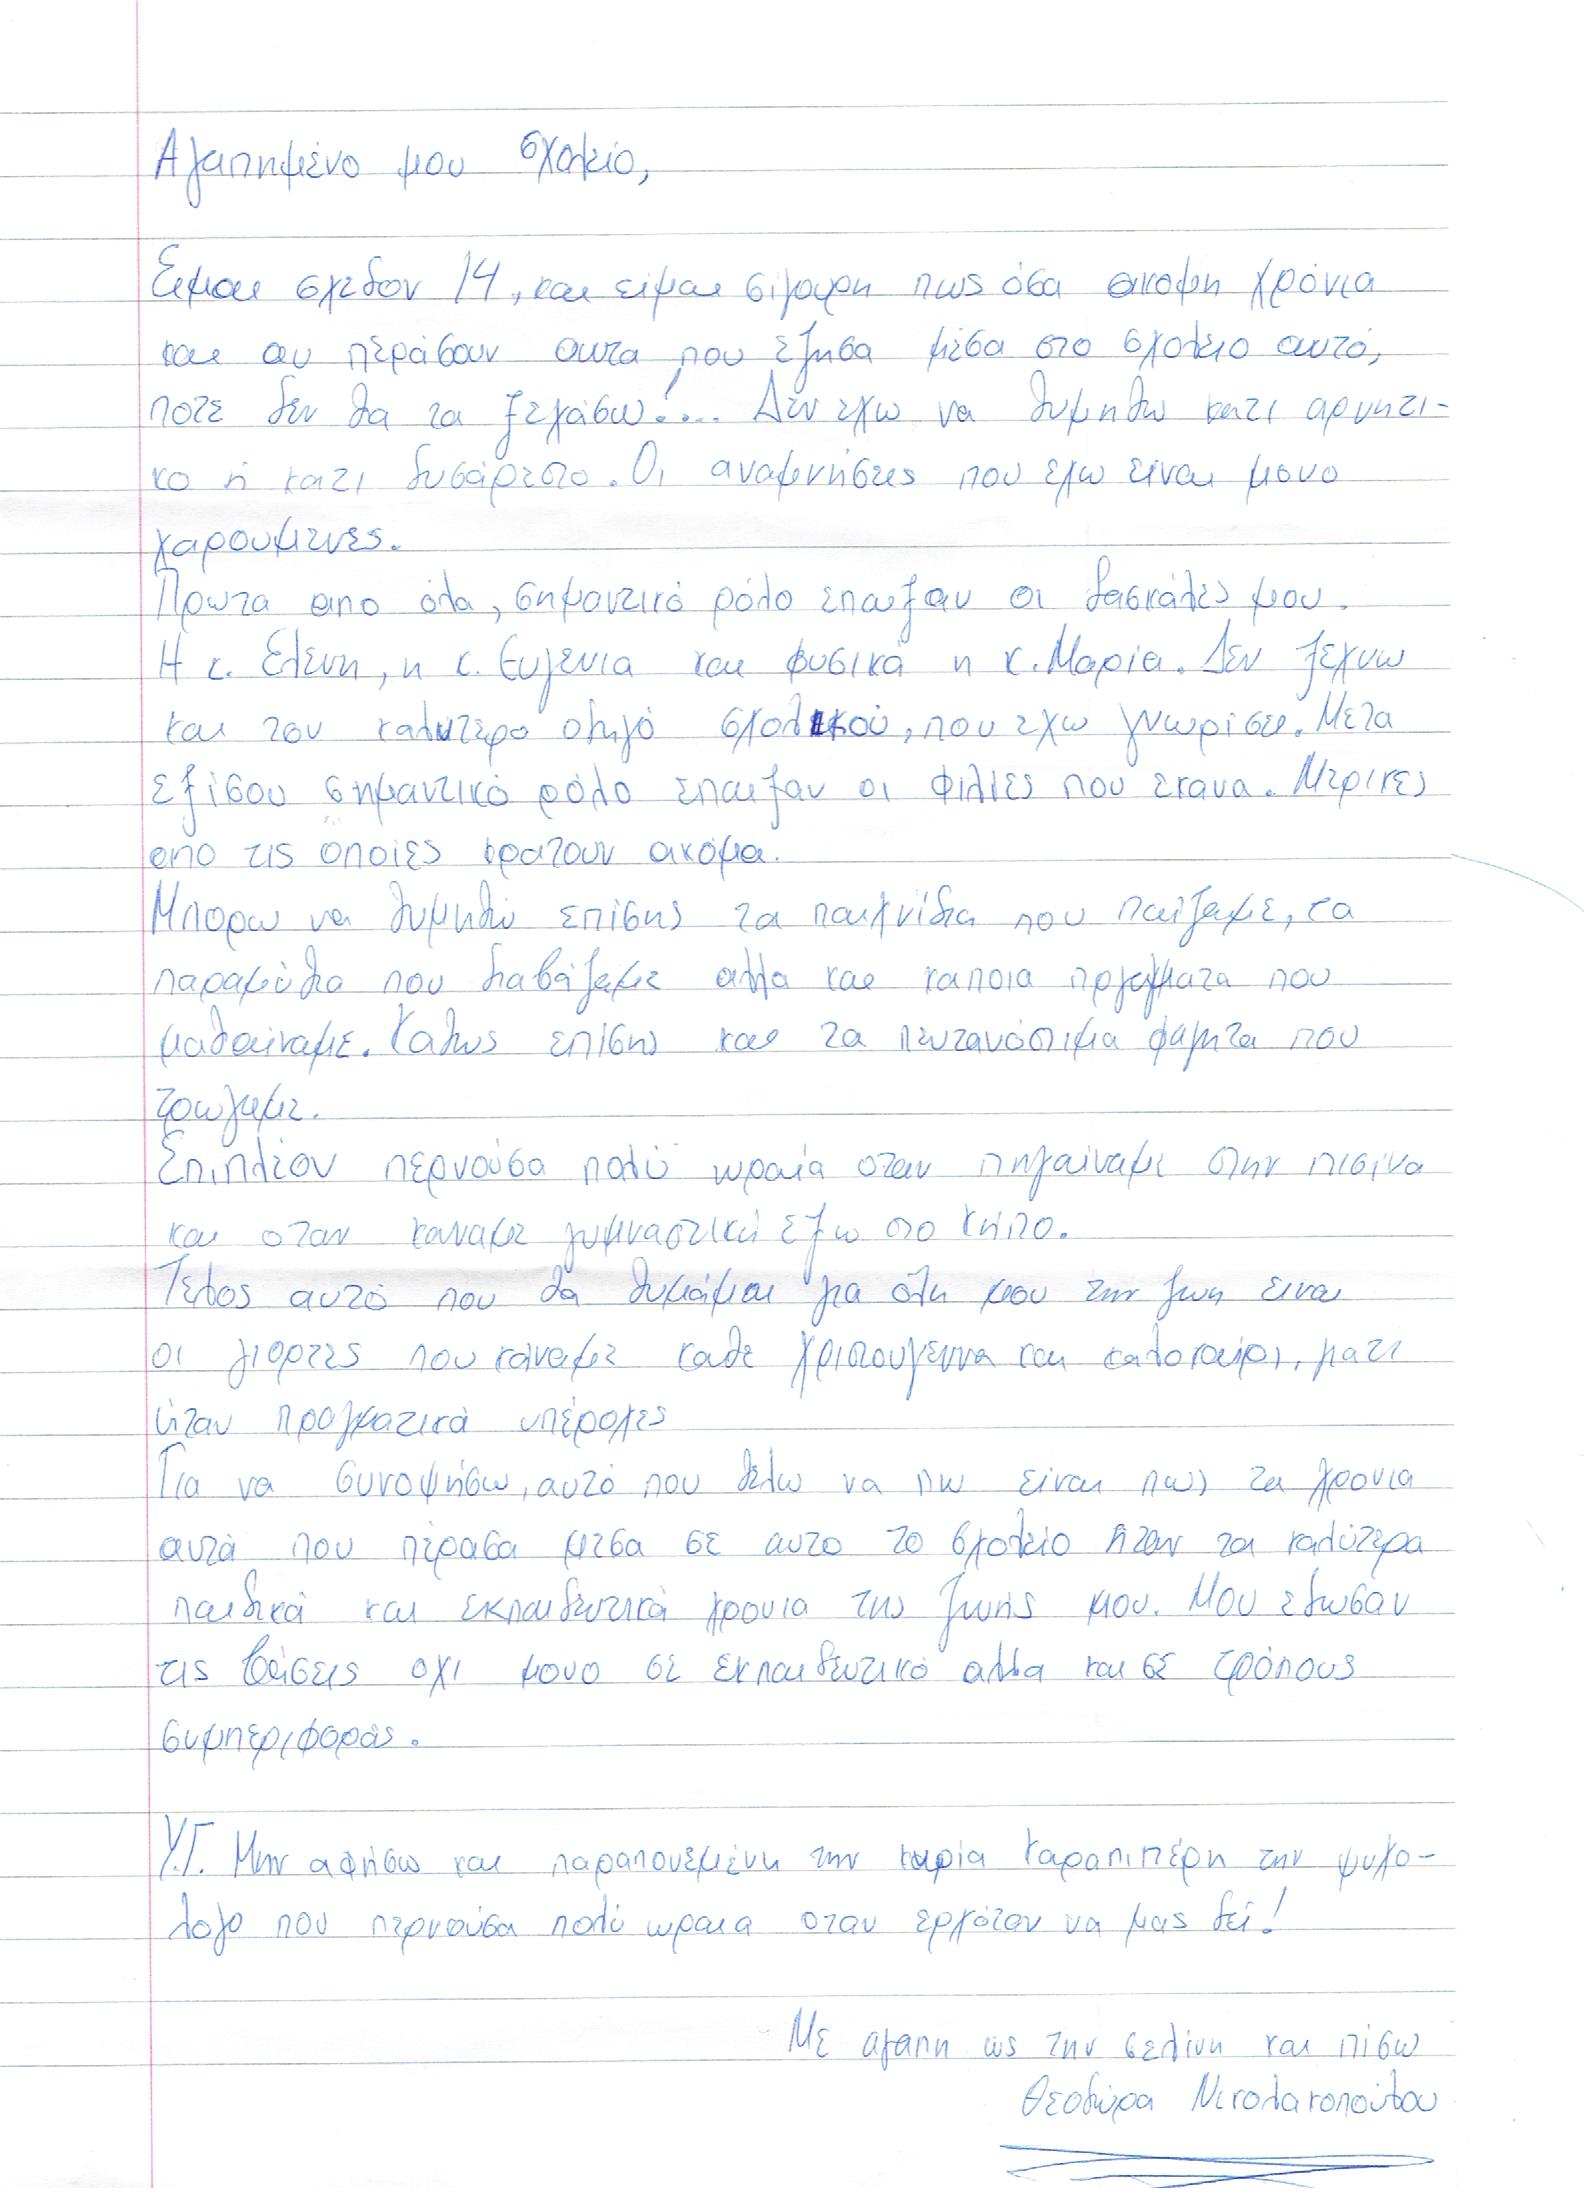 Αγαπημένο μου σχολείο,
Είμαι σχεδον 14, και είμαι σίγουρη πως όσα ακομη χρόνια
και αν περάσουν αυτα που έζησα μέσα στο σχολειο αυτό,
ποτε δεν θα τα ξεχάσω!... Δεν εχω να θυμηθω κατι αρνητι-
κο ή κατι δυσάρεστο. Οι αναμνήσεις που εχω ειναι μονο
χαρουμενες.
Πρωτα απο όλα, σημαντικό ρόλο επαιξαν οι δασκάλες μου.
Η κ. Ελενη, η κ. Ευγενια και φυσικά η κ. Μαρία. Δεν ξεχνω
και τον καλυτερο οδηγό σχολικού, που εχω γνωρίσει. Μετα
εξίσου σημαντικό ρόλο επαιξαν οι φιλίες που εκανα. Μερικες
απο τις οποίες κρατουν ακόμα.
Μπορω να θυμηθώ επίσης τα παιχνίδια που παίζαμε, τα
παραμύθια που διαβάζαμε αλλα και καποια πργαγματα που
μαθαίναμε. Καθως επίσης και τα πεντανόστιμα φαγητα που
τρωγαμε.
Επιπλέον περνούσα πολύ ωραία οταν πηγαίναμε στην πισίνα
και οταν καναμε γυμναστική εξω στο κήπο.
Τελος αυτό που θα θυμάμαι για όλη μου την ζωη ειναι
οι γιορτες που κάναμε καθε Χριστουγεννα και καλοκαίρι, γιατι
ήταν πραγματικά υπέροχες
Για να συνοψήσω, αυτό που θελω να πω είναι πως τα χρονια
αυτά που πέρασα μεσα σε αυτο το σχολείο ήταν τα καλύτερα
παιδικά και εκπαιδευτικά χρονια της ζωής μου. Μου εδωσαν
τις βάσεις οχι μονο σε εκπαιδευτικό αλλα και σε τρόπους
συμπεριφοράς.
Υ.Γ. Μην αφήσω και παραπονεμένη την κυρία Καραπιπέρη την ψυχο-
λογο που περνούσα πολύ ωραια οταν ερχόταν να μας δεί!
Με αγαπη ως την σελίνη και πίσω
Θεοδώρα Νικολακοπούλου